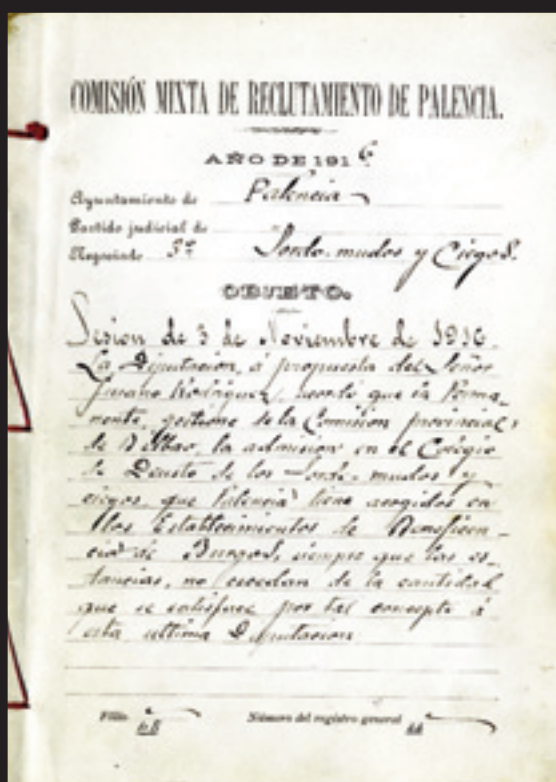 COMISIÓN MIXTA DE RECLUTAMIENTO DE PALENCIA.
AÑO DE 1916
Ayuntamiento de Palencia
Partido judicial de
Negociado 3º Sordo-mudos y Ciegos.
OBJETO.
Sesion de 3 de Noviembre de 1916.
La Diputación, á propuesta del Señor
Rodriguez, acordó que la Perma-
nente, gestione de la Comisión provincial
de Bilbao, la admision en el Colegio
de Deusto de los Sordo-mudos y
ciegos, que Palencia tiene acogidos en
los Establecimientos de Beneficen-
cia de Burgos, siempre que las es-
tancias, no excedan de la cantidad
que se satisface por tal concepto á
esta ultima Diputacion
Folio
Número del registro general